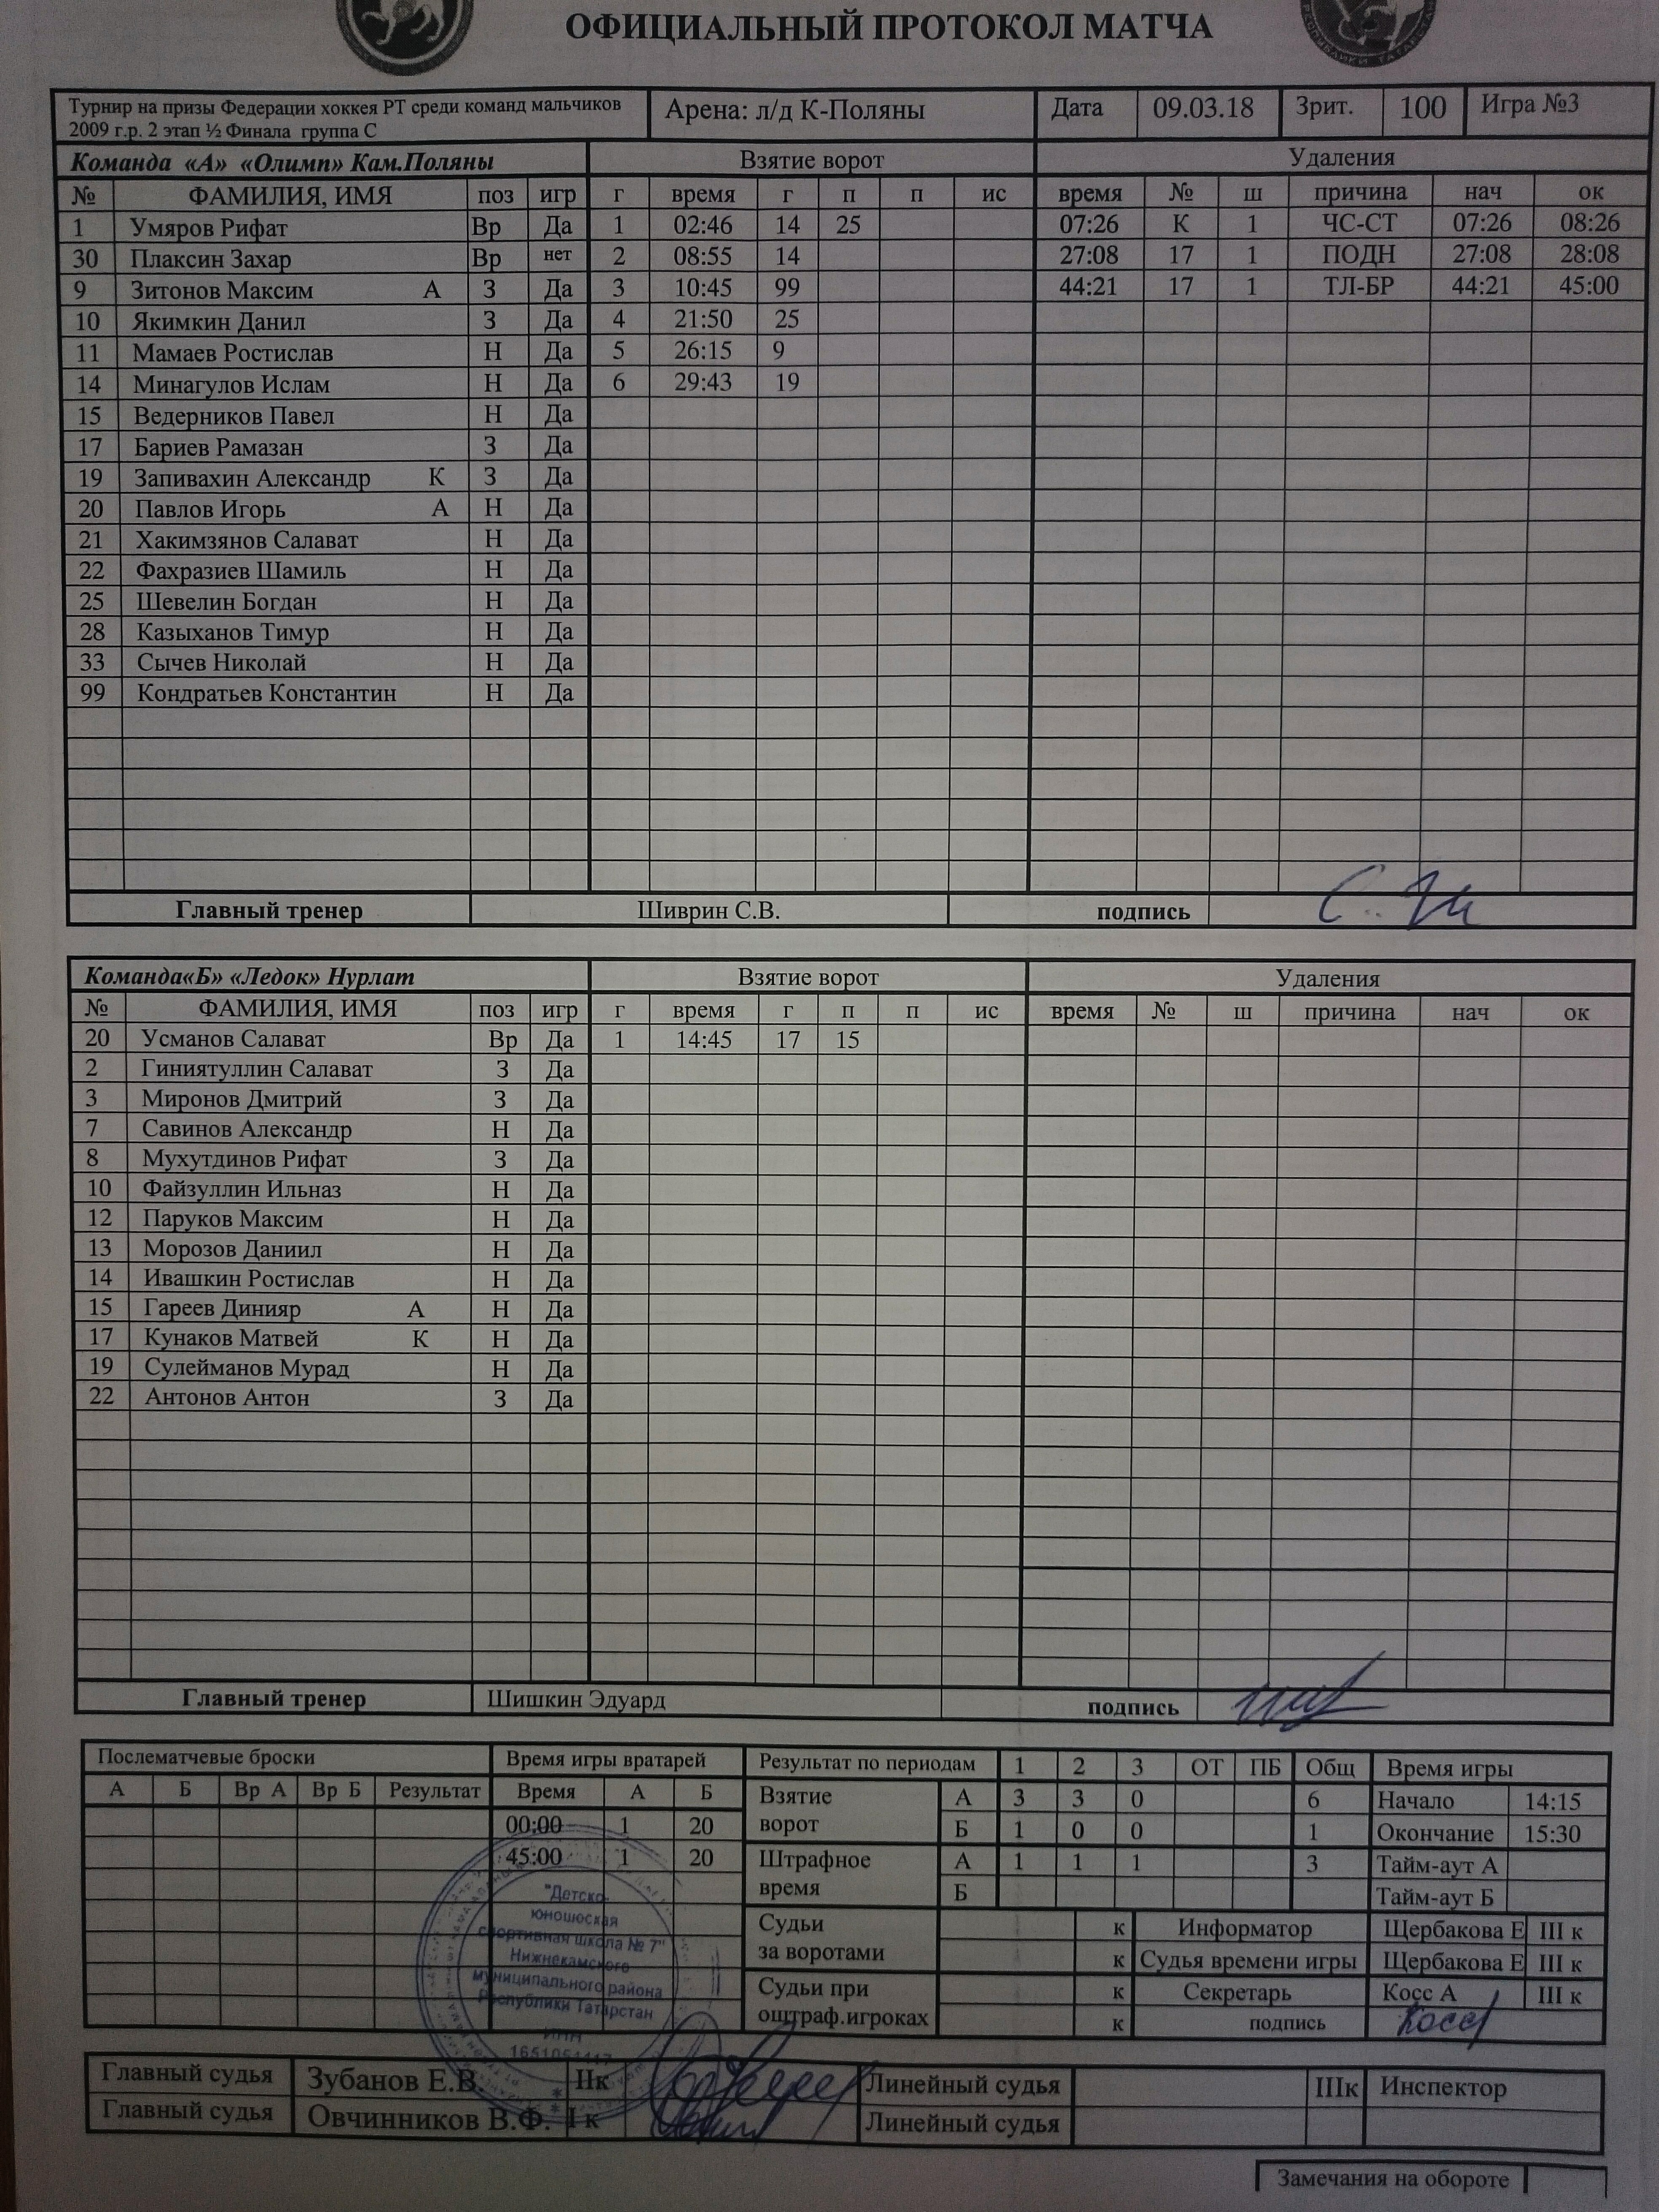 ОФИЦИАЛЬНЫЙ ПРОТОКОЛ МАТЧА
Турнир на призы Федерации хоккея РТ среди команд мальчиков Арена: л/д К-Поляны Дата 09.03.18 Зрит. 100 Игра №3
2009 г.р. 2 этап ½ Финала группа С
Команда «А» «Олимп» Кам.Поляны Взятие ворот Удаления
№ ФАМИЛИЯ, ИМЯ поз игр г время г п п ис время № ш причина нач ок
1 Умяров Рифат Вр Да 1 02:46 14 25 07:26 К 1 ЧС-СТ 07:26 08:26
30 Плаксин Захар Вр нет 2 08:55 14 27:08 17 1 ПОДН 27:08 28:08
9 Зитонов Максим А З Да 3 10:45 99 44:21 17 1 ТЛ-БР 44:21 45:00
10 Якимкин Данил З Да 4 21:50 25
11 Мамаев Ростислав Н Да 5 26:15 9
14 Минагулов Ислам Н Да 6 29:43 19
15 Ведерников Павел Н Да
17 Бариев Рамазан З Да
19 Запивахин Александр К З Да
20 Павлов Игорь А Н Да
21 Хакимзянов Салават Н Да
22 Фахразиев Шамиль Н Да
25 Шевелин Богдан Н Да
28 Казыханов Тимур Н Да
33 Сычев Николай Н Да
99 Кондратьев Константин Н Да
Главный тренер Шиврин С.В. подпись
Команда«Б» «Ледок» Нурлат Взятие ворот Удаления
№ ФАМИЛИЯ, ИМЯ поз игр г время г п п ис время № ш причина нач ок
20 Усманов Салават Вр Да 1 14:45 17 15
2 Гиниятуллин Салават З Да
3 Миронов Дмитрий З Да
7 Савинов Александр Н Да
8 Мухутдинов Рифат З Да
10 Файзуллин Ильназ Н Да
12 Паруков Максим Н Да
13 Морозов Даниил Н Да
14 Ивашкин Ростислав Н Да
15 Гареев Динияр А Н Да
17 Кунаков Матвей К Н Да
19 Сулейманов Мурад Н Да
22 Антонов Антон З Да
Главный тренер Шишкин Эдуард подпись
Послематчевые броски Время игры вратарей Результат по периодам 1 2 3 ОТ ПБ Общ Время игры
А Б Вр А Вр Б Результат Время А Б Взятие ворот А 3 3 0 6 Начало 14:15
00:00 1 20 Б 1 0 0 1 Окончание 15:30
45:00 1 20 Штрафное время А 1 1 1 3 Тайм-аут А
Б Тайм-аут Б
Судьи за воротами к Информатор Щербакова Е III к
к Судья времени игры Щербакова Е III к
Судьи при оштраф.игроках к Секретарь Косс А III к
к подпись Косс
"Детско-
юношеская
спортивная школа № 7"
Нижнекамского
муниципального района
Республики Татарстан
ИНН
Главный судья Зубанов Е.В. IIк Линейный судья IIIк Инспектор
Главный судья Овчинников В.Ф. I к Линейный судья
Замечания на обороте